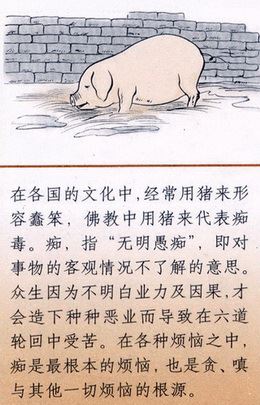 在各国的文化中,经常用猪来形
容蠢笨，佛教中用猪来代表痴
毒。痴，指“无明愚痴”，即对
事物的客观情况不了解的意思。
众生因为不明白业力及因果,才
会造下种种恶业而导致在六道
轮回中受苦。在各种烦恼之中,
痴是最根本的烦恼，也是贪、嗔
与其他一切烦恼的根源。